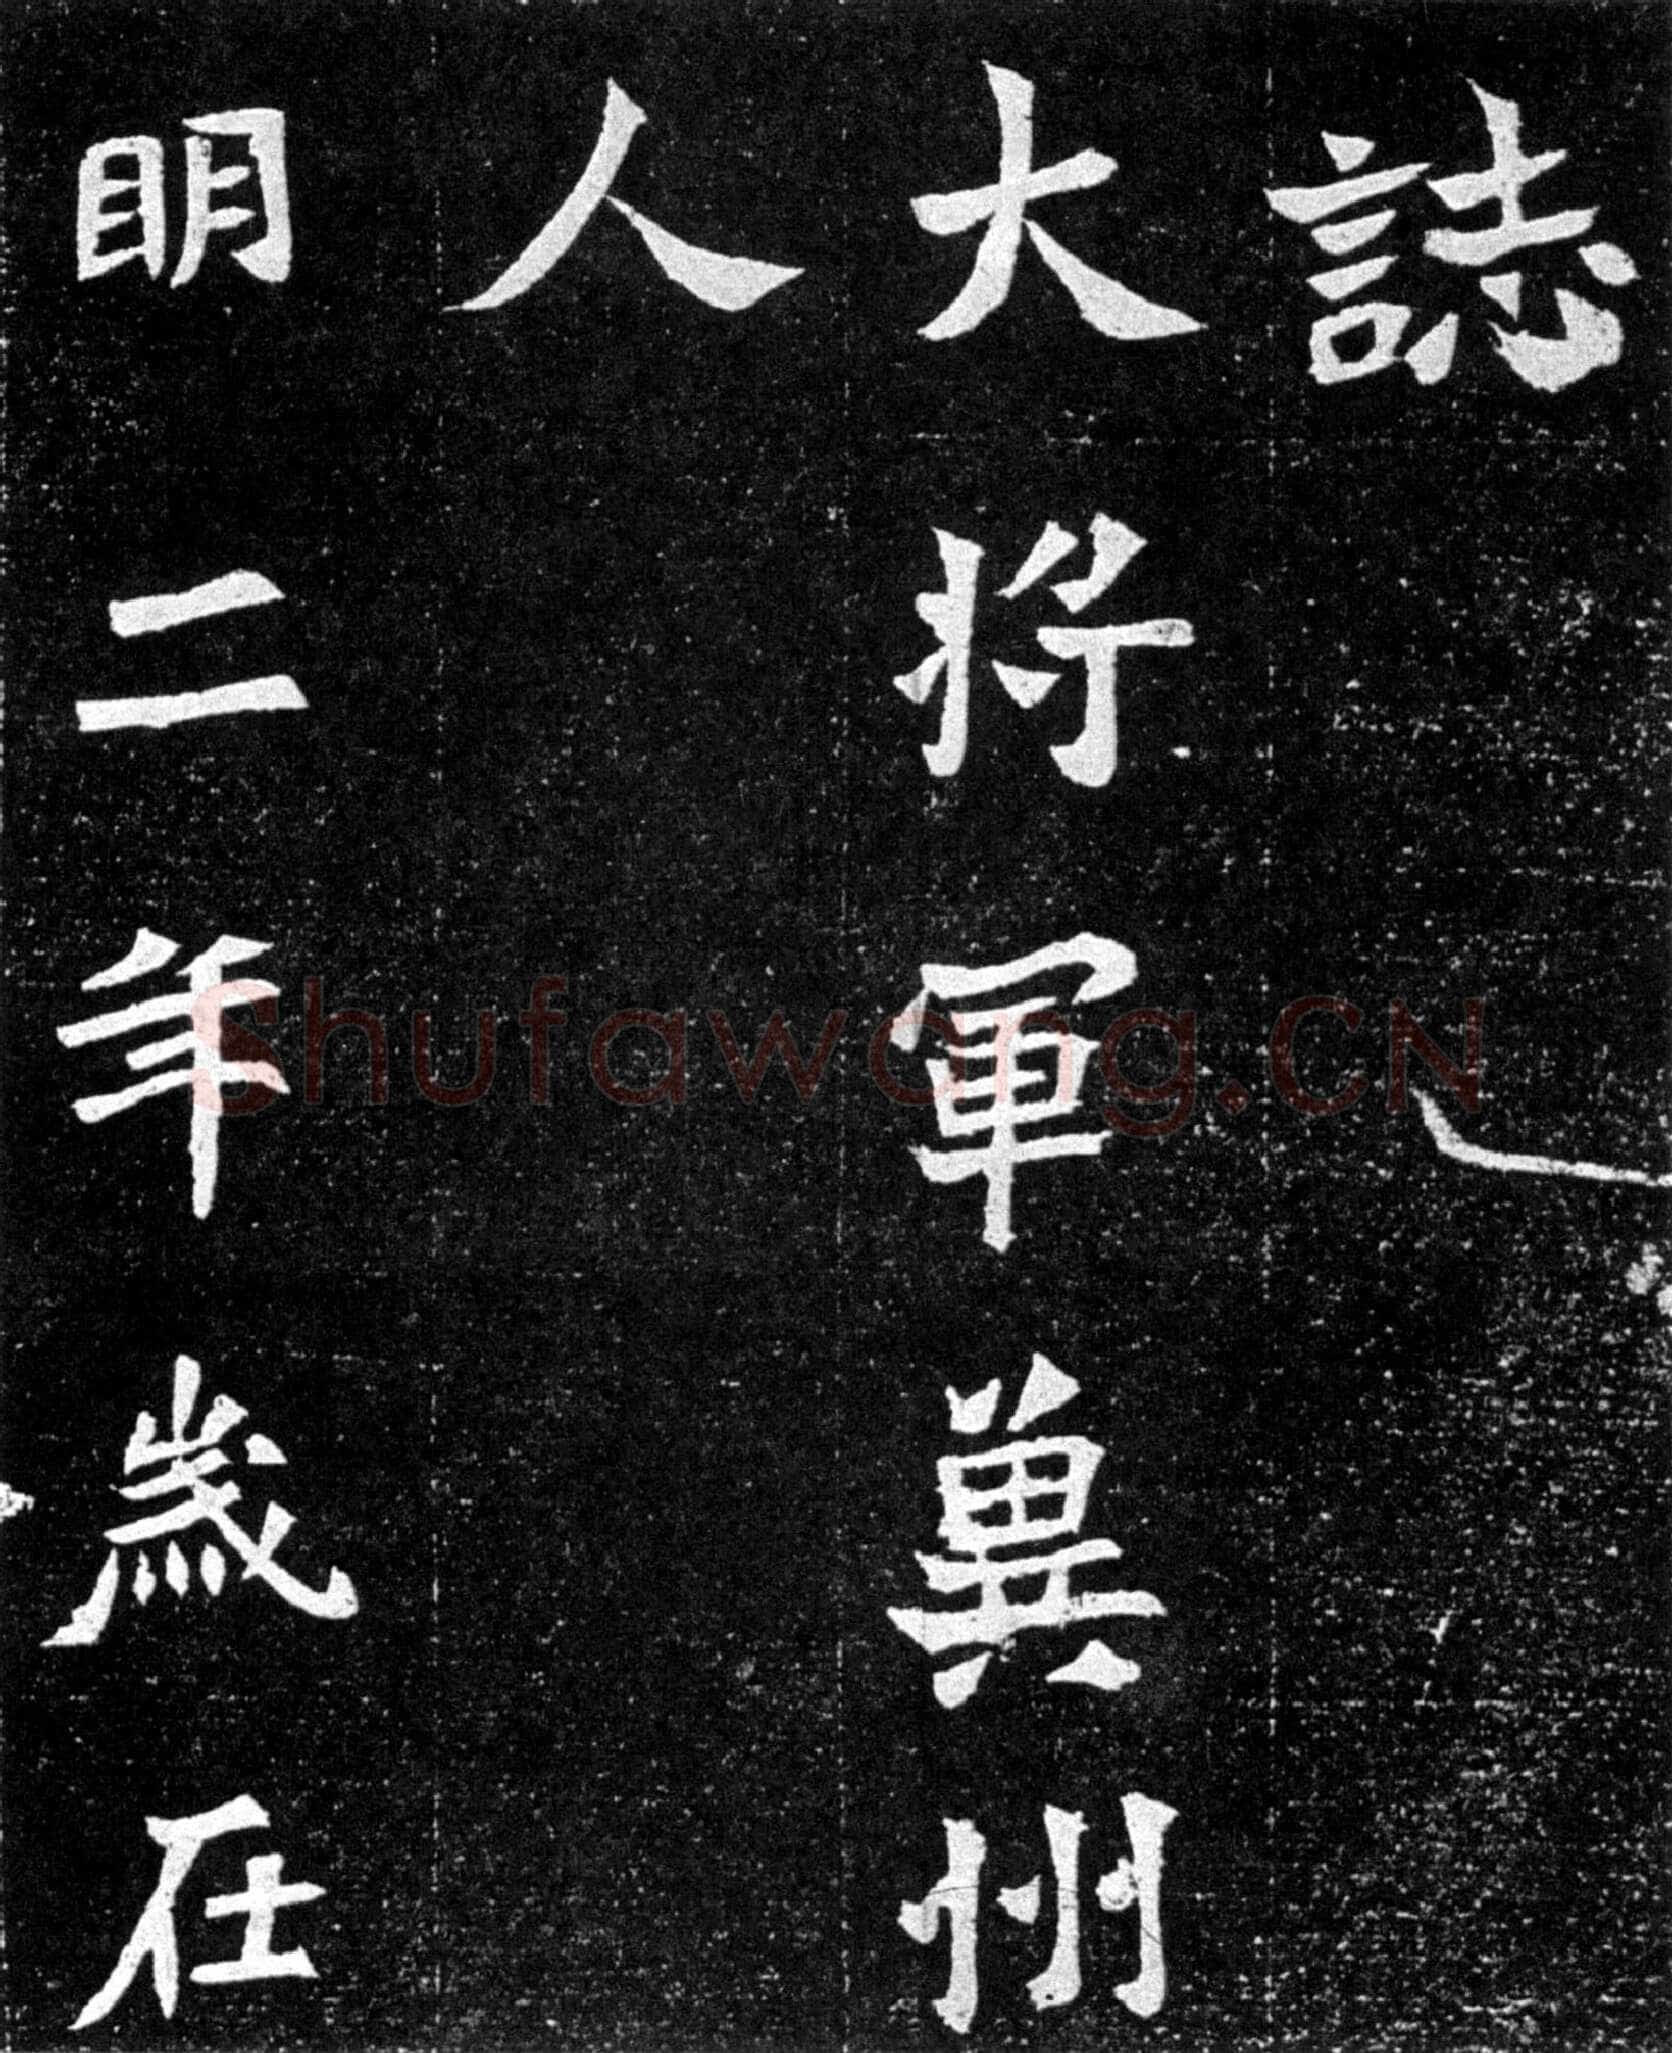 誌
大將軍冀州
人
明二年歲在
Shufawang.CN